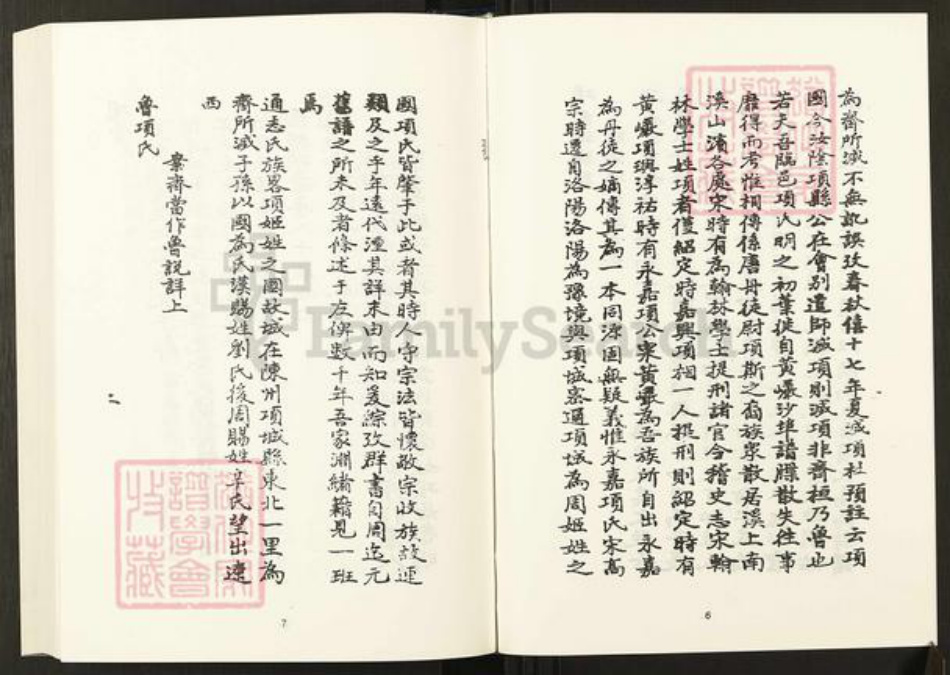 為齊所滅不無訛誤攷春秋僖十七年夏滅項杜預註云項
國今汝陰項縣公在會别遣師滅項則滅項非齊桓乃魯也
若夫吾臨邑項氏明之初葉徙自黃巖沙埠譜牒散失往事
靡得而考惟祠傳係唐丹徒尉項斯之裔族衆散居溪上南
溪山濱各處宋時有為翰林學士提刑諸官今稽史志宋翰
林學士姓項者僅紹定時嘉興項相一人提刑則紹定時有
黃巖項璵淳祐時有永嘉項公寀黃巖為吾族所自出永嘉
為丹徒之嫡傳其為一本同源固無疑義惟永嘉項氏宋高
宗時遷自洛陽洛陽為豫境與項城密邇項城為周姬姓之
國項氏皆肇于此或者其時人守宗法皆懷敬宗收族故運
類及之乎年遠代湮其詳末由而知爰綜攷群書自周迄元
舊譜之所未及者條述于左俾數千年吾家淵緒籍見一班
焉
通志氏族畧項姬姓之國故城在陳州項城縣東北一里為
齊所滅子孫以國為氏漢賜姓劉氏後周賜姓辛氏望出遼
西
案齊當作魯説詳上
魯項氏
二
6
7
FamilySearch